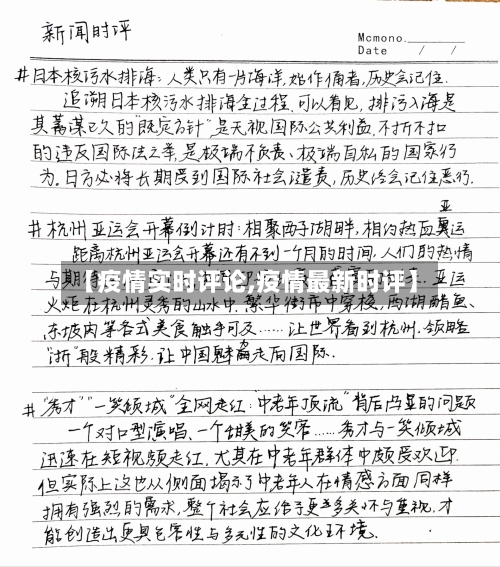 新闻时评
Mcmono.
Date / /
#日本核污水排海：人类只有一片海洋,始作俑者,历史会记住.
追溯日本核污水排海全过程,可以看见,排污入海是
其蓄谋已久的"既定方针"是无视国际公共利益,不折不扣
的违反国际法之举,是极端不负责、极端自私的国家行
为。日方必将长期受到国际社会谴责,历史终会记住恶行.
亚
#杭州亚运会开幕倒计时:相聚西子湖畔,相约热血奥运
距离杭州亚运会开幕还有不到一个月的时间,人们的热情
与期待
【疫情实时评论,疫情最新时评】
亚运
火炬在杭州灵秀的山水中.繁华街市中穿梭,西湖醋鱼、
东坡肉等各式美食触手可及……让世界看到杭州.领略
"浙"般精彩.让中国魅力走向国际.
#"秀才""一笑倾城"全网走红:"中老年顶流"背后凸显的问题
一个对口型演唱、一个甜美的笑容……秀才与一笑倾城
迅速在短视频走红,尤其在中老年群体中颇受欢迎.
但实际上这也从侧面揭示了中老年人在情感方面同样
拥有强烈的需求,整个社会应给予更多关怀与重视.才
能创造出更具包容性与多元性的文化环境.